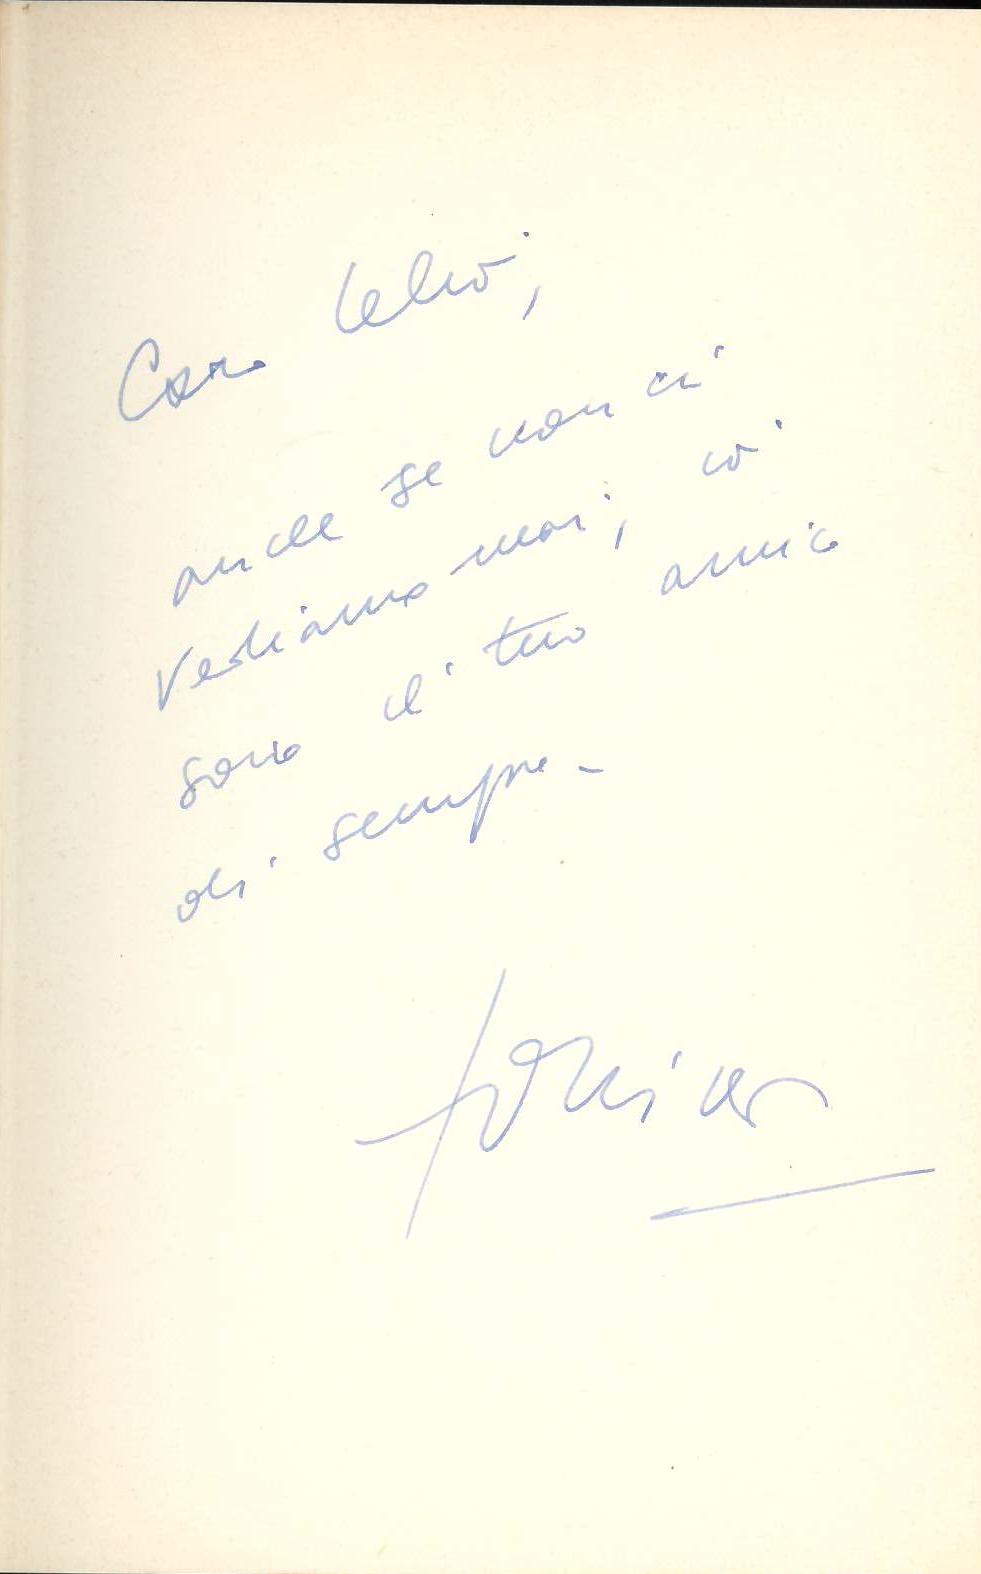 Caro Lelio,
anche se non ci
vediamo mai, io
sono il tuo amico
di sempre -